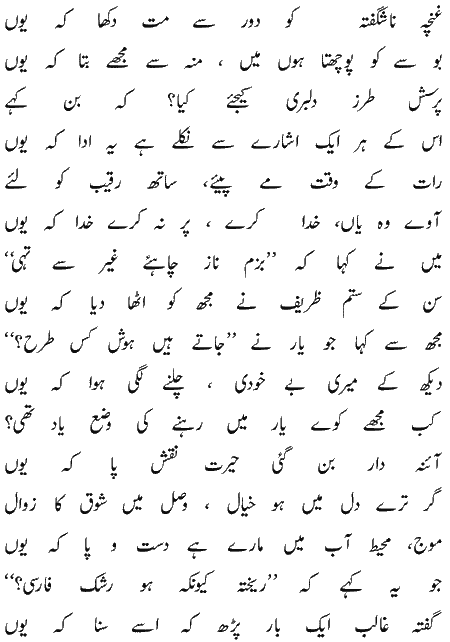 غنچہ ناشگفتہ کو دور سے مت دکھا کہ یوں
بوسے کو پوچھتا ہوں میں ، منہ سے مجھے بتا کہ یوں
پرسش طرز دلبری کیجئے کیا؟ کہ بن کہے
اس کے ہر ایک اشارے سے نکلے ہے یہ ادا کہ یوں
رات کے وقت مے پیئے، ساتھ رقیب کو لئے
آوے وہ یاں، خدا کرے ، پر نہ کرے خدا کہ یوں
میں نے کہا کہ ”بزم ناز چاہئے غیر سے تہی“
سن کے ستم ظریف نے مجھ کو اٹھا دیا کہ یوں
مجھ سے کہا جو یار نے ”جاتے ہیں ہوش کس طرح؟“
دیکھ کے میری بے خودی ، چلنے لگی ہوا کہ یوں
کب مجھے کوے یار میں رہنے کی وضع یاد تھی؟
آئنہ دار بن گئی حیرت نقش پا کہ یوں
گر ترے دل میں ہو خیال ، وصل میں شوق کا زوال
موج، محیط آب میں مارے ہے دست و پا کہ یوں
جو یہ کہے کہ ”ریختہ کیونکہ ہو رشک فارسی؟“
گفتہ غالب ایک بار پڑھ کہ اسے سنا کہ یوں